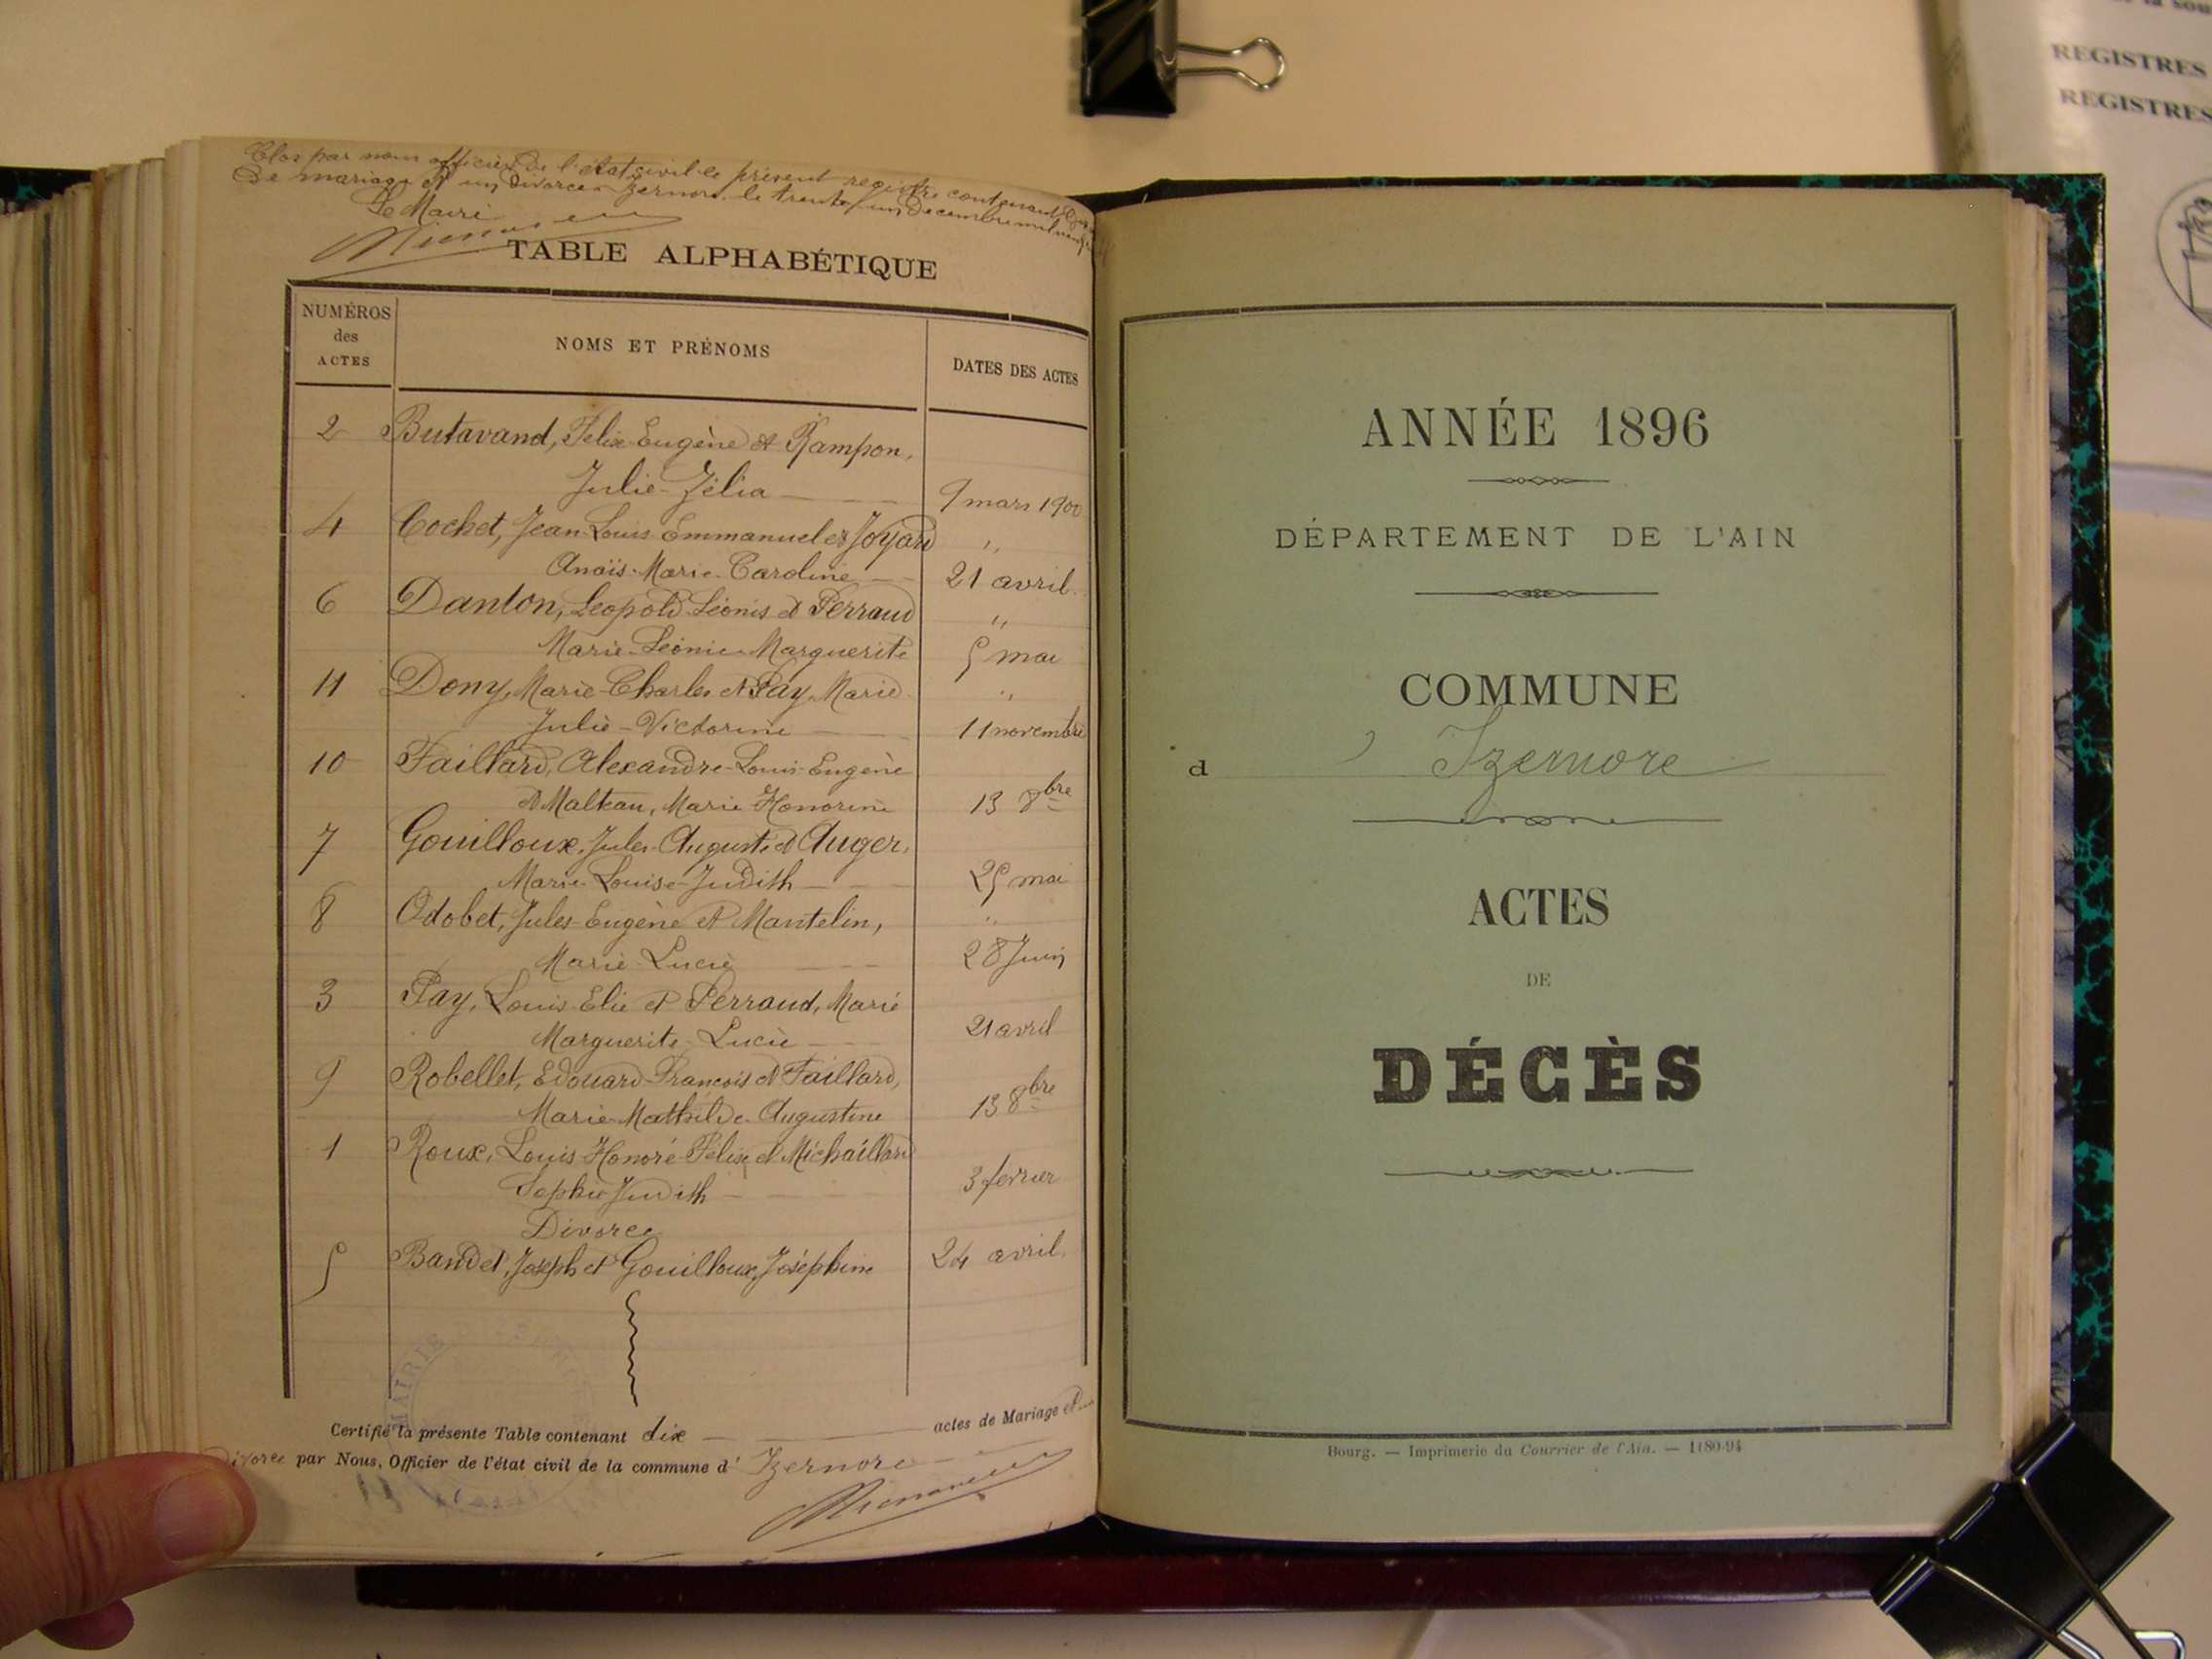 Clos par nous officier de l'état civil le présent registre contenant
de mariage et un divorce Izernore, le trente un Decembre mil neuf
Le Maire
TABLE ALPHABÉTIQUE
NUMÉROS des ACTES
NOMS ET PRÉNOMS
DATES DES ACTES
2 Butavand, Felix Eugène et Rampon,
Julie-Zélia 9 mars 1900
4 Cochet, Jean-Louis Emmanuel et Joyard "
Anaïs-Marie-Caroline 21 avril
6 Danton, Leopold Léonis et Perraud "
Marie-Léonie-Marguerite 5 mai
11 Dony, Marie-Charles et Pay, Marie "
Julie-Victorine 11 novembre
10 Faillard, Alexandre-Louis-Eugène
et Malteau, Marie Honorine 13 8bre
7 Gouilloux, Jules-Auguste et Auger,
Marie-Louise-Judith 25 mai
8 Odobet, Jules-Eugène et Mantelin, "
Marie-Lucie 28 Juin
3 Pay, Louis-Elie et Perraud, Marie
Marguerite-Lucie 21 avril
9 Robellet, Edouard-François et Faillard,
Marie-Mathilde-Augustine 13 8bre
1 Roux, Louis Honoré Félix et Michaillard
Sophie Judith 3 février
Divorce
5 Bandet, Joseph et Gouilloux, Joséphine 24 avril
MAIRIE
Certifié la présente Table contenant dix actes de Mariage et
Divorce par Nous, Officier de l'état civil de la commune d' Izernore
ANNÉE 1896
DÉPARTEMENT DE L'AIN
COMMUNE
d' Izernore
ACTES
DE
DÉCÈS
Bourg. — Imprimerie du Courrier de l'Ain. — 1180-94
REGISTRES
REGISTRES